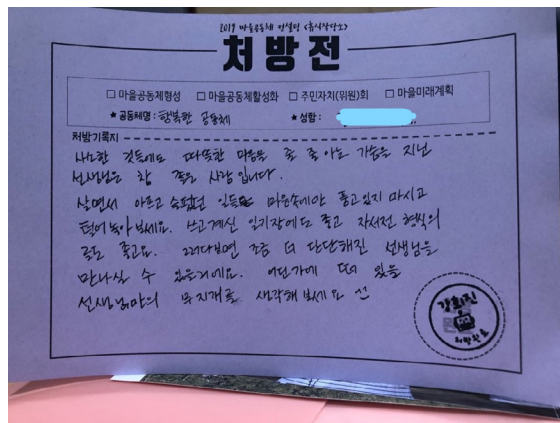 2019 마을공동체 컨설팅 <휴식상담소>
처방전
□ 마을공동체형성 □ 마을공동체활성화 □ 주민자치(위원)회 □ 마을미래계획
★ 공동체명 : 행복한 공동체 ★ 성함 :
처방기록지
사소한 것들에도 따뜻한 마음을 줄 줄 아는 가슴을 지닌
선생님은 참 좋은 사람입니다.
살면서 아프고 슬펐던 일들을 마음속에만 품고있지 마시고
털어놓아보세요. 쓰고계신 일기장에도 좋고 자서전 형식의
글도 좋고요. 그러다보면 조금 더 단단해진 선생님을
만나실 수 있을거에요. 어딘가에 떠 있을
선생님만의 무지개를 생각해 보세요
강희진
처방완료